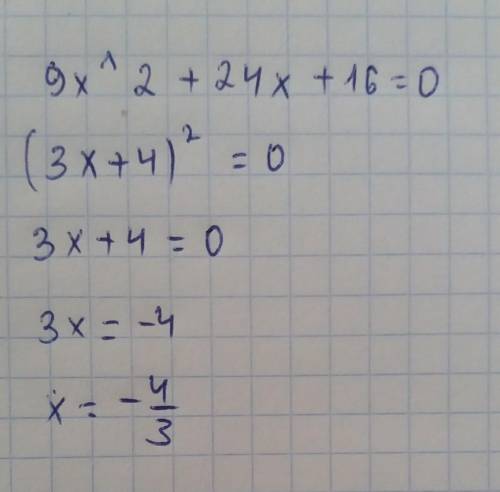 9x^2 + 24x + 16 = 0
(3x + 4)² = 0
3x + 4 = 0
3x = -4
x = -4/3